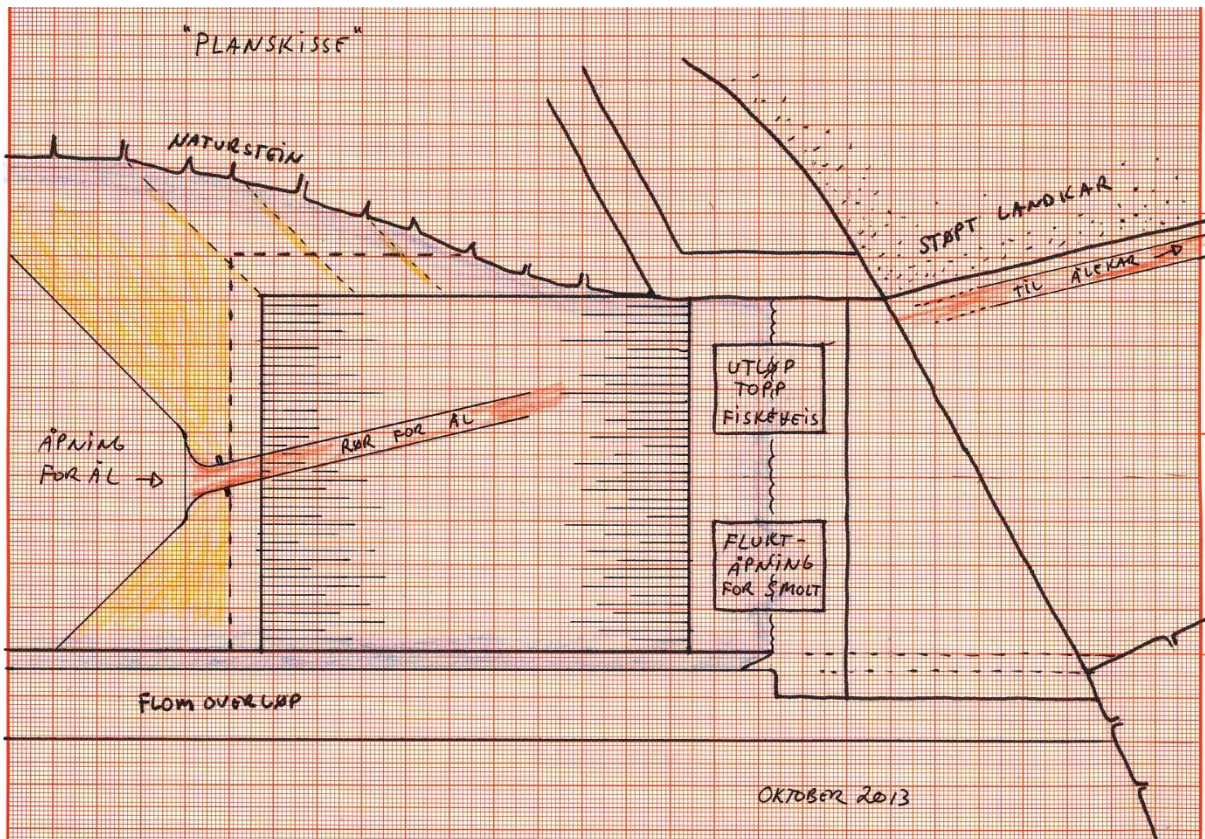 "PLANSKISSE"
NATURSTEIN
STØPT LANDKAR
TIL ÅLEKAR
UTLØP
TOPP
FISKEHEIS
RØR FOR ÅL
ÅPNING
FOR ÅL
FLUKT-
ÅPNING
FOR SMOLT
FLOM OVERLØP
OKTOBER 2013